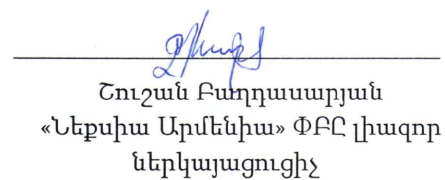 Շուշան Բաղդասարյան
«Նեքսիա Արմենիա» ՓԲԸ լիազոր
ներկայացուցիչ